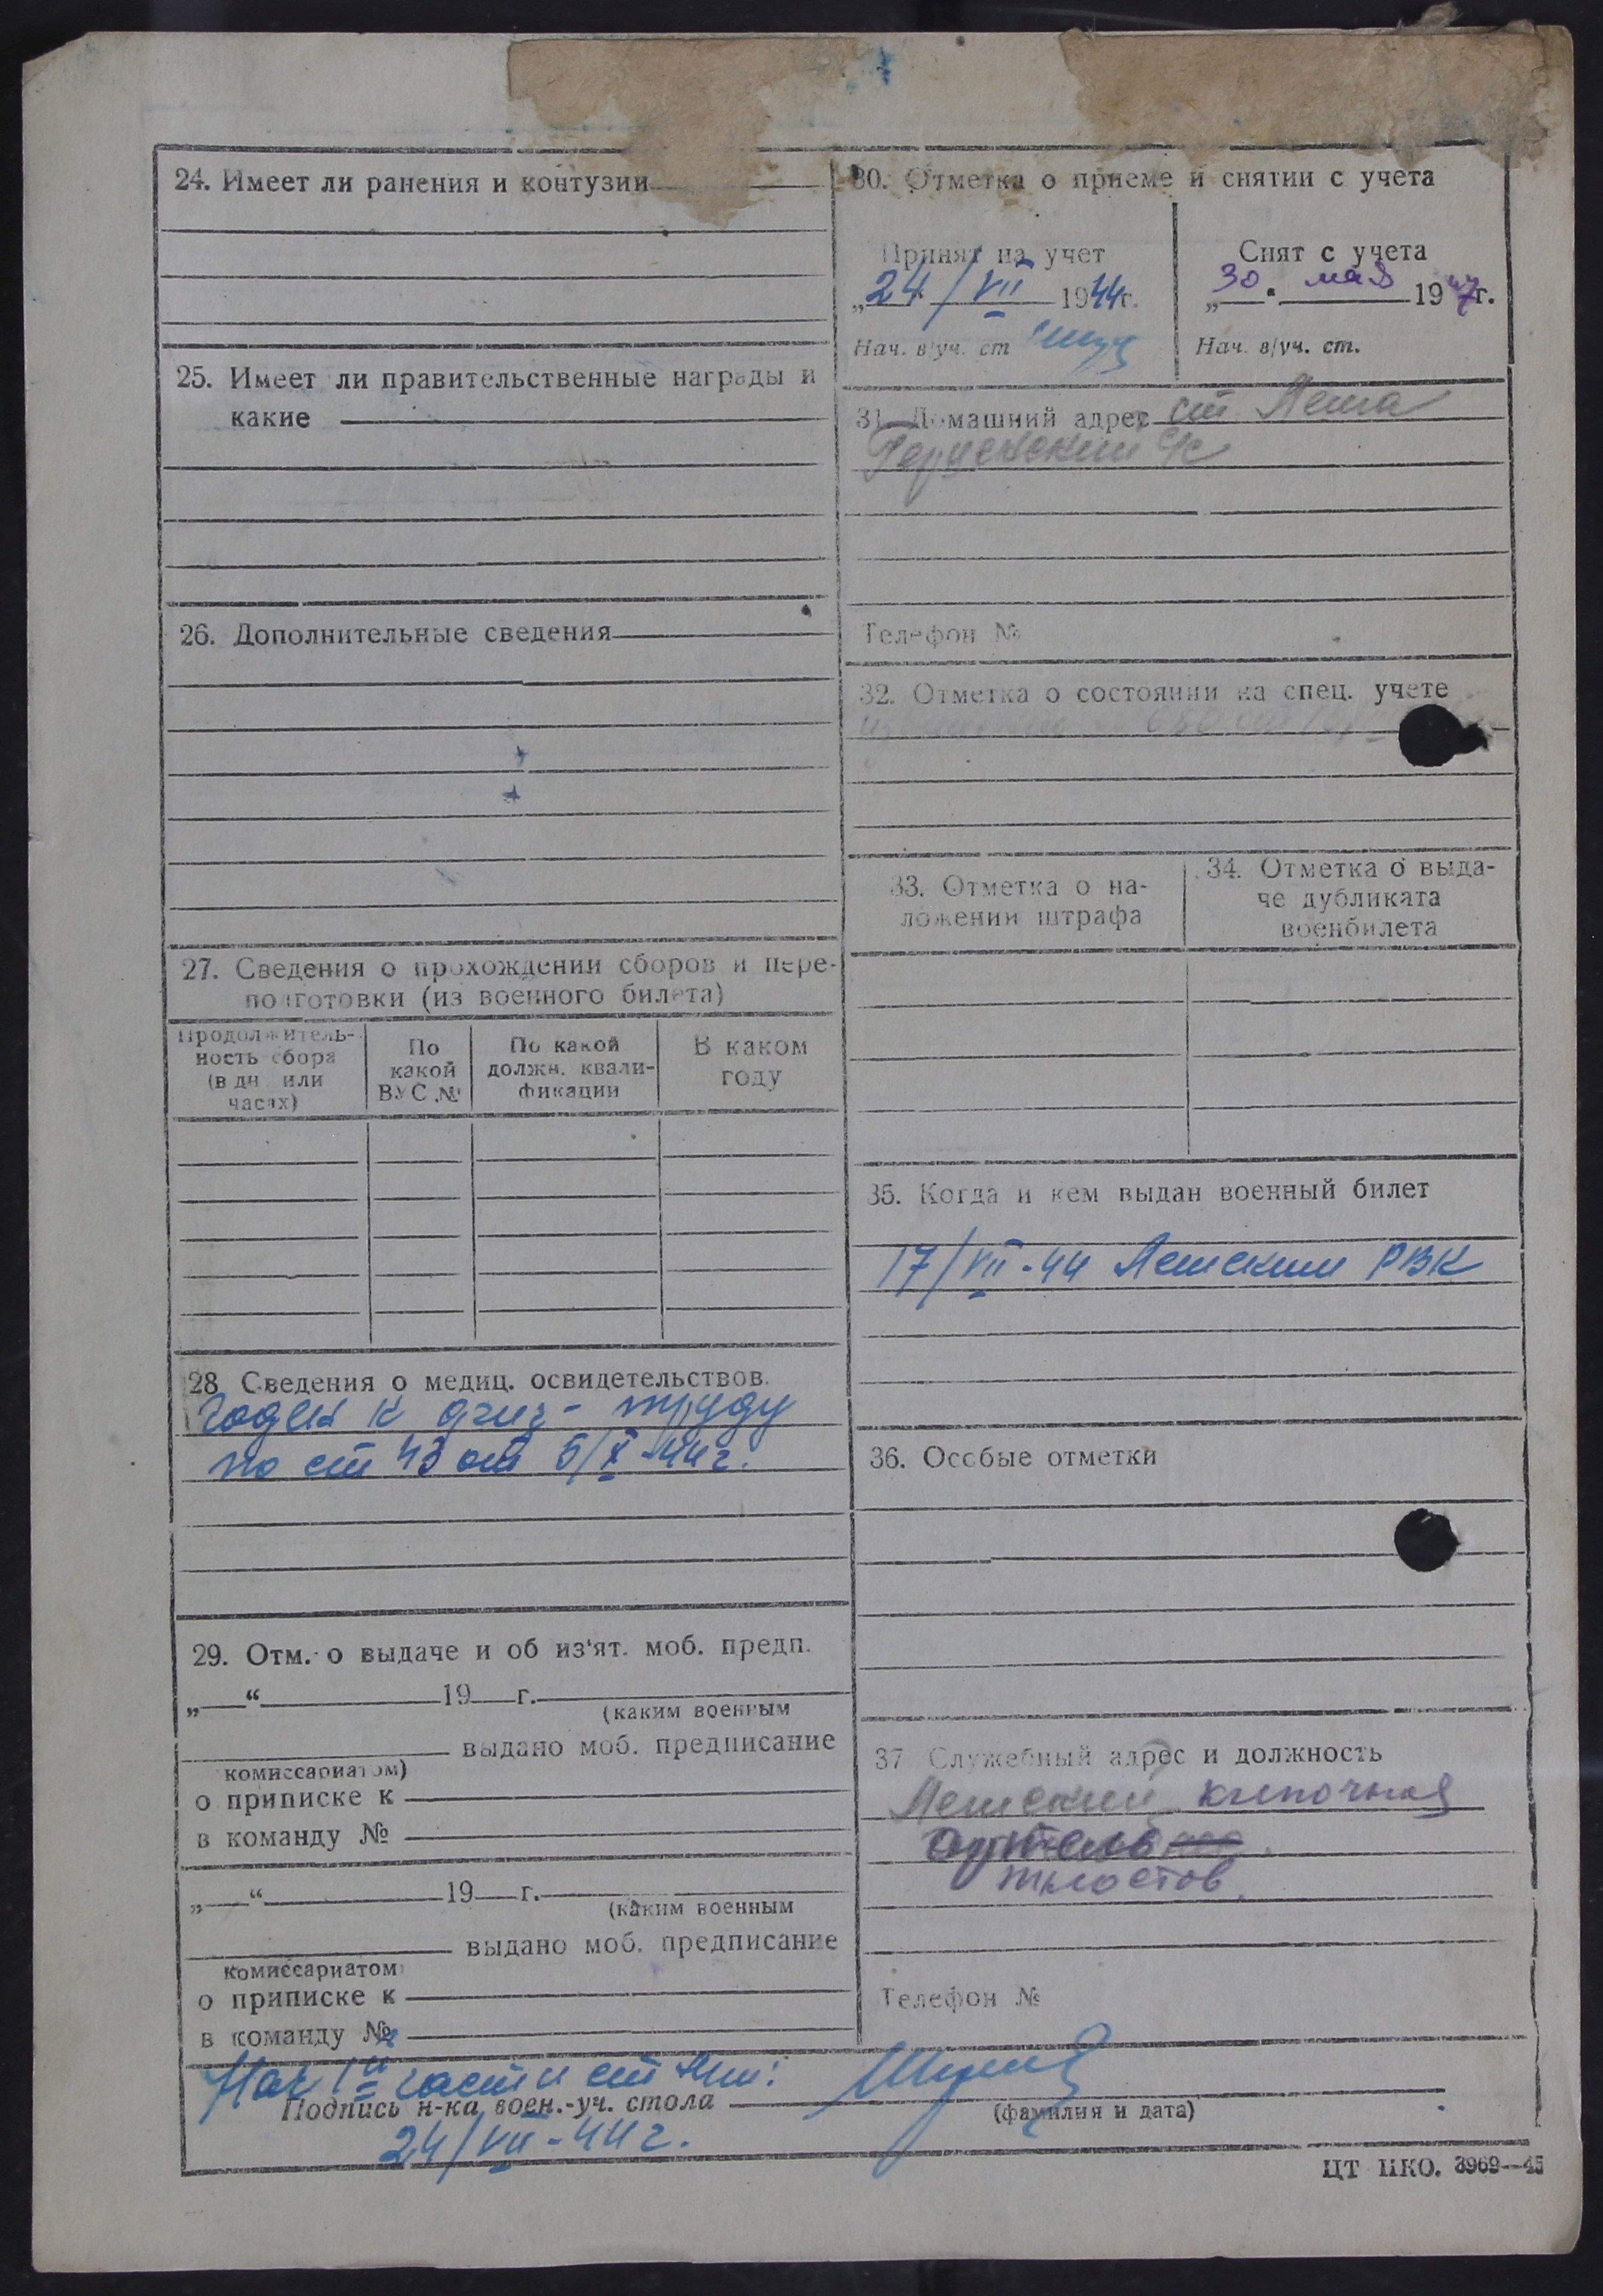 24. Имеет ли ранения и контузии
25. Имеет ли правительственные награды и
какие
26. Дополнительные сведения
27. Сведения о прохождении сборов и пере-
подготовки (из военного билета)
Продолжитель-
ность сбора
(в дн. или
часах)
По
какой
ВУС №
По какой
должн. квали-
фикации
В каком
году
28. Сведения о медиц. освидетельствов.
Годен к физ- труду
по ст 43 от 5/X-44 г.
29. Отм. о выдаче и об из'ят. моб. предп.
„ “ 19 г.
(каким военным
выдано моб. предписание
комиссариатом)
о приписке к
в команду №
„ “ 19 г.
(каким военным
выдано моб. предписание
комиссариатом
о приписке к
в команду №
30. Отметка о приеме и снятии с учета
Принят на учет
„24/VII 1944г.
Нач. в/уч. ст
Снят с учета
„30. мая 1947г.
Нач. в/уч. ст.
31. Домашний адрес ст
с/с
Телефон №
32. Отметка о состоянии на спец. учете
33. Отметка о на-
ложении штрафа
34. Отметка о выда-
че дубликата
военбилета
35. Когда и кем выдан военный билет
17/VII-44 РВК
36. Особые отметки
37 Служебный адрес и должность
Телефон №
Нач 1й части ст
Подпись н-ка воен.-уч. стола
(фамилия и дата)
24/VII-44 г.
ЦТ НКО. 3969—45